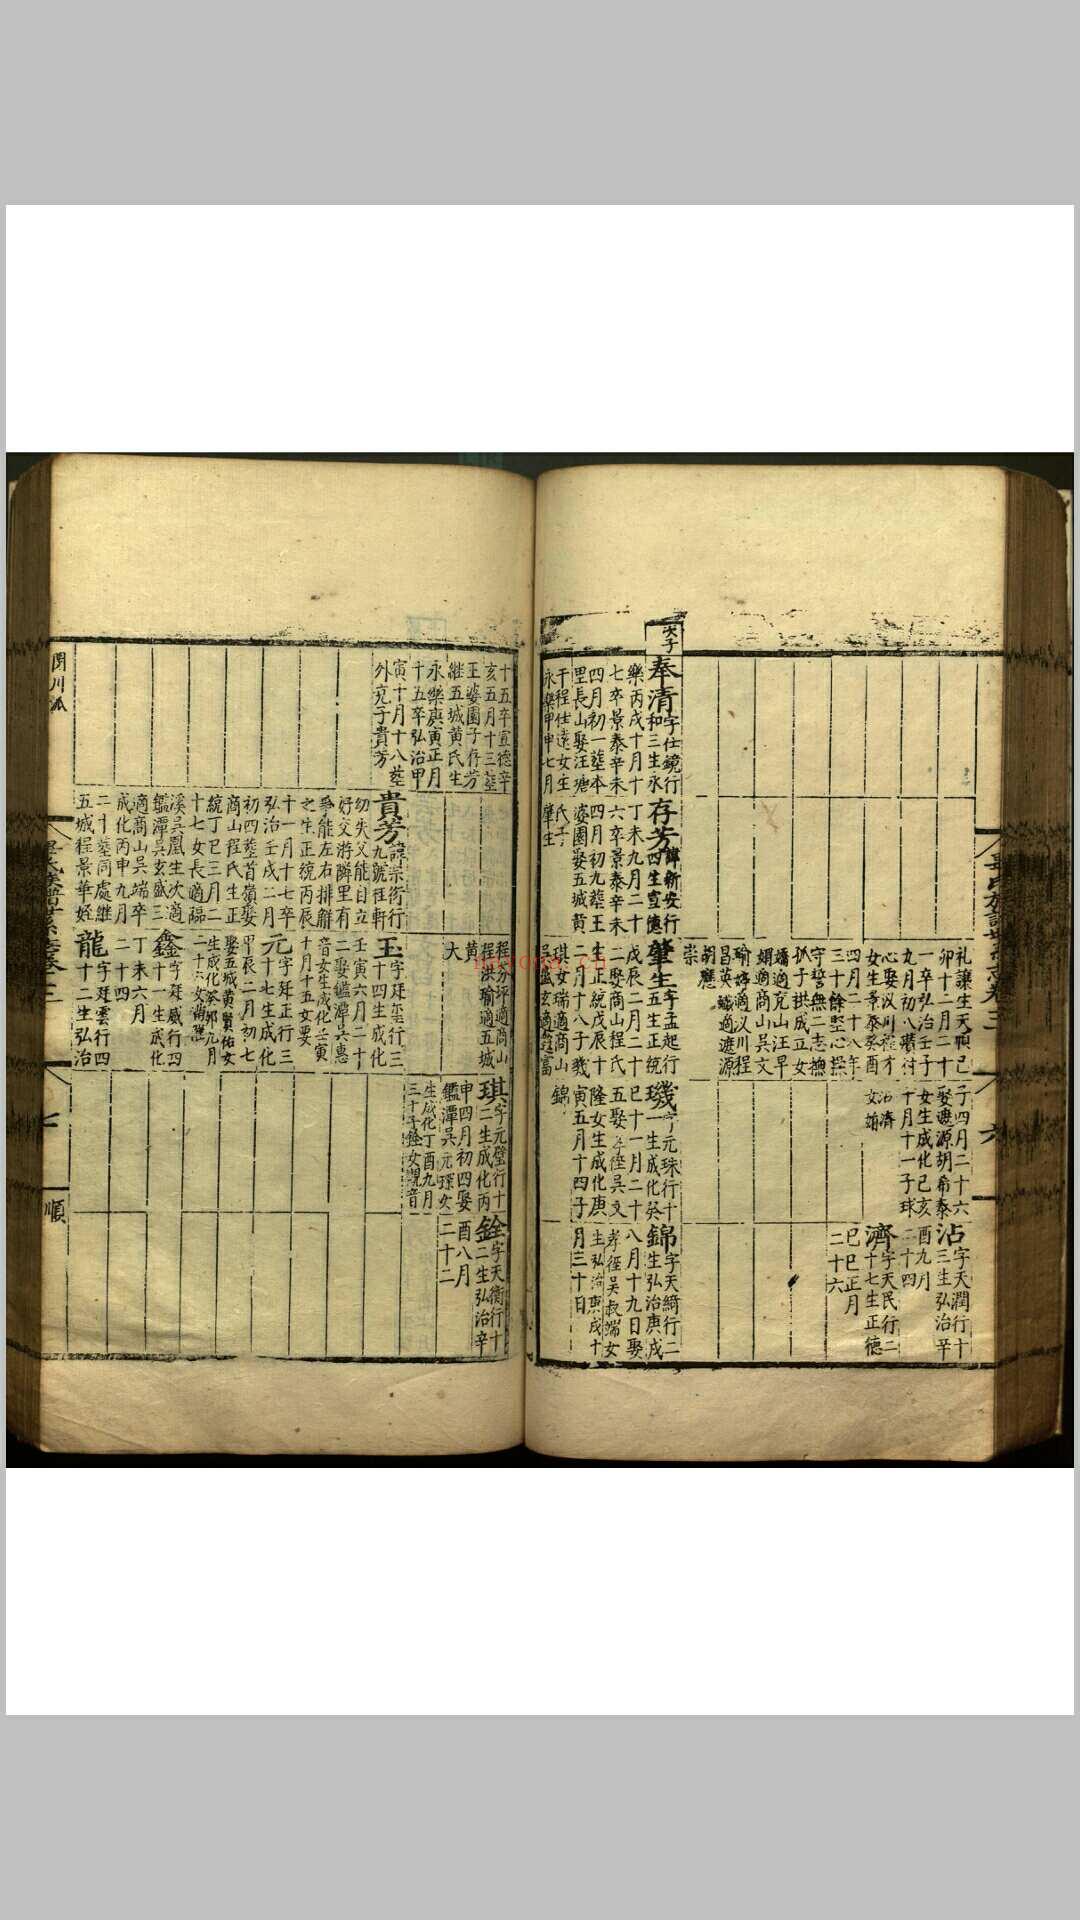 次子
奉清字仕鏡行
和三生永
樂丙戌十月十
七卒景泰辛未
四月初一塟本
里長山娶汪瑭
干程仕遠女生
永樂甲申七月
存芳諱新安行
四生宣德
丁未九月二十
六卒景泰辛未
四月初九塟王
婆園娶五城黄
氏子
肇生
礼讓生天順己
卯十二月二十
一卒弘治壬子
九月初八殯付
心娶汊川程才
女生景泰癸酉
四月二十八年
三十餘堅心操
守誓無二志撫
孤子拱成立女
適兖山汪早
娟適商山吳文
瑜婷適汊川程
昌英鐵適遮源
胡應
崇
肇生字孟起行
五生正統
戊辰二月二十
二娶商山程氏
生正統戊辰十
二月十八子璣
琪女瑞適商山
吳
子四月二十六
娶遮源胡希泰
女生成化己亥
十月十一子球
沾濟
女
璣字元珠行十
一生成化癸
巳十一月二十
五娶
隆女生成化庚
寅五月十四子
錦
沾字天潤行十
三生弘治辛
酉九月
二十四
濟字天民行二
十七生正德
己巳正月
二十六
錦字天綺行二
生弘治庚戌
八月十九日娶
孝徑吳叔端女
生弘治庚戌十
月三十日
呈氏族譜世系志卷三
六
十五卒宣德辛
亥五月十三塟
王婆園子存芳
継五城黄氏生
永樂庚寅正月
十五卒弘治甲
寅十月十八塟
外兖子貴芳
貴芳諱宗衍行
九號徃軒
幼失父能自立
好交游隣里有
爭能左右排解
之生正統丙辰
十一月十七卒
弘治壬戌二月
初四塟首嶺娶
商山程氏生正
統丁巳三月二
十七女長適福
溪吳凰生次適
鑑潭吳玄盛三
適商山吳端卒
成化丙申九月
二十塟同處継
五城程景華姪
程汾坪適商山
程洪瑜適五城
黄
大
玉字廷玉行三
十四生成化
壬寅六月二十
二娶鑑潭吳惠
音女生成化壬寅
十月十五女要
元字廷正行三
十七生成化
甲辰二月初七
娶五城黄賢佑女
生成化癸卯九月
二十六女
鑫字廷威行四
十一生成化
丁未六月
二十四
龍字廷雲行四
十二生弘治
琪字元璧行十
二生成化丙
申四月初四娶
鑑潭吳元琛女
生成化丁酉九月
三十子銓女觀音
銓字天衡行十
二生弘治辛
酉八月
二十二
閔川派
呈氏族譜世系志卷三
七
順